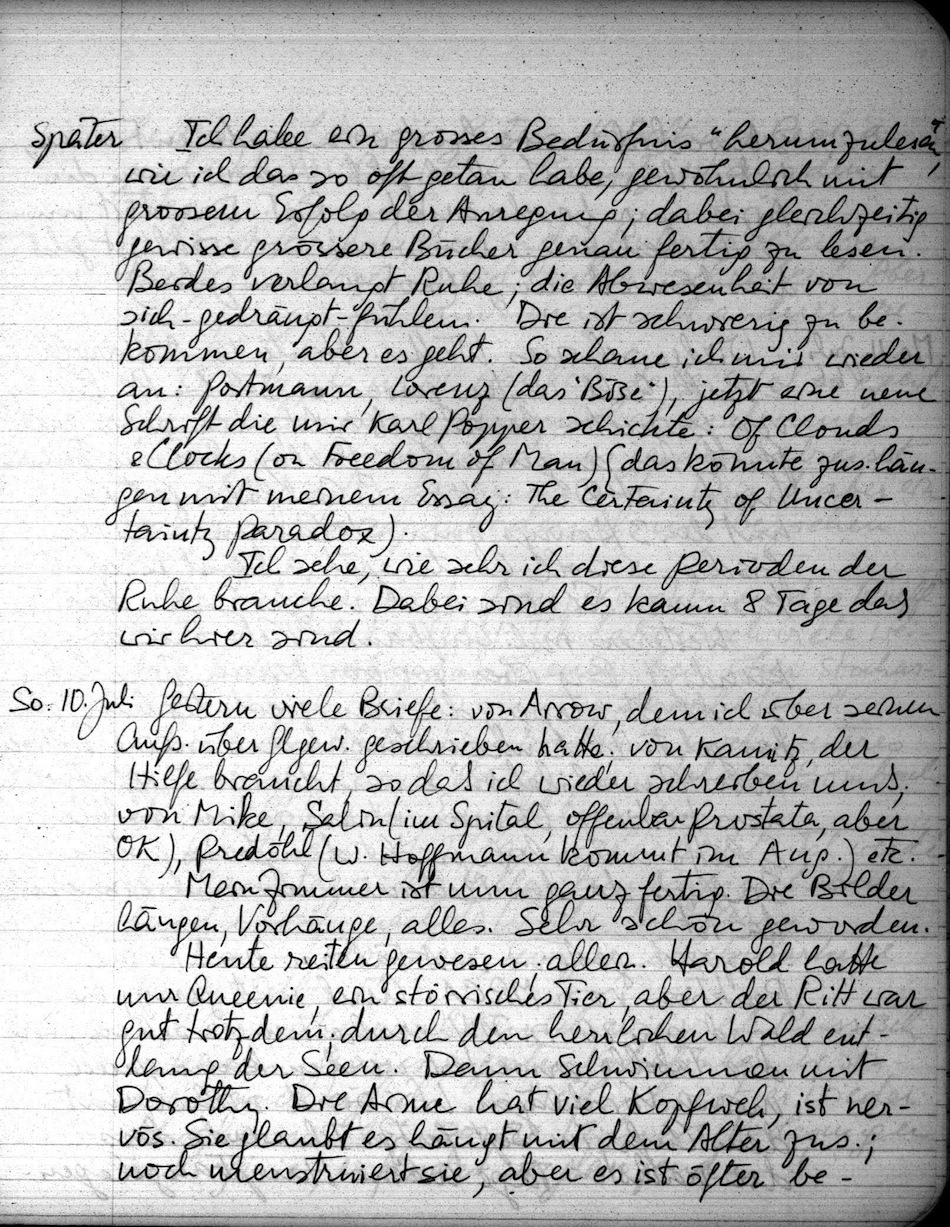 Später Ich habe ein grosses Bedürfnis "herumzulesen",
wie ich das so oft getan habe, gewöhnlich mit
grossem Erfolg der Anregung; dabei gleichzeitig
gewisse grössere Bücher genau fertig zu lesen.
Beides verlangt Ruhe; die Abwesenheit von
sich-gedrängt-fühlen. Die ist schwierig zu be-
kommen, aber es geht. So schaue ich mir wieder
an: Portmann, Lorenz (das "Böse"), jetzt eine neue
Schrift die mir Karl Popper schickte: Of Clouds
& Clocks (on Freedom of Man) (das könnte zus.hän-
gen mit meinem Essay: The Certainty of Uncer-
tainty Paradox).
Ich sehe, wie sehr ich diese Perioden der
Ruhe brauche. Dabei sind es kaum 8 Tage das
wir hier sind.
So. 10. Juli Gestern viele Briefe: von Arrow, dem ich über seinen
Aufs. über Glgew. geschrieben hatte; von Kamitz, der
Hilfe braucht, so das ich wieder schreiben muss;
von Mike, Salin (im Spital, offenbar Prostata, aber
OK), Predöhl (W. Hoffmann kommt im Aug.) etc.
Mein Zimmer ist nun ganz fertig. Die Bilder
hängen, Vorhänge, alles. Sehr schön geworden.
Heute reiten gewesen, allein. Harold hatte
nur Queenie, ein störrisches Tier, aber der Ritt war
gut trotzdem; durch den herrlichen Wald ent-
lang der Seen. Dann Schwimmen mit
Dorothy. Die Arme hat viel Kopfweh, ist ner-
vös. Sie glaubt es hängt mit dem Alter zus.;
noch menstruiert sie, aber es ist öfter be-